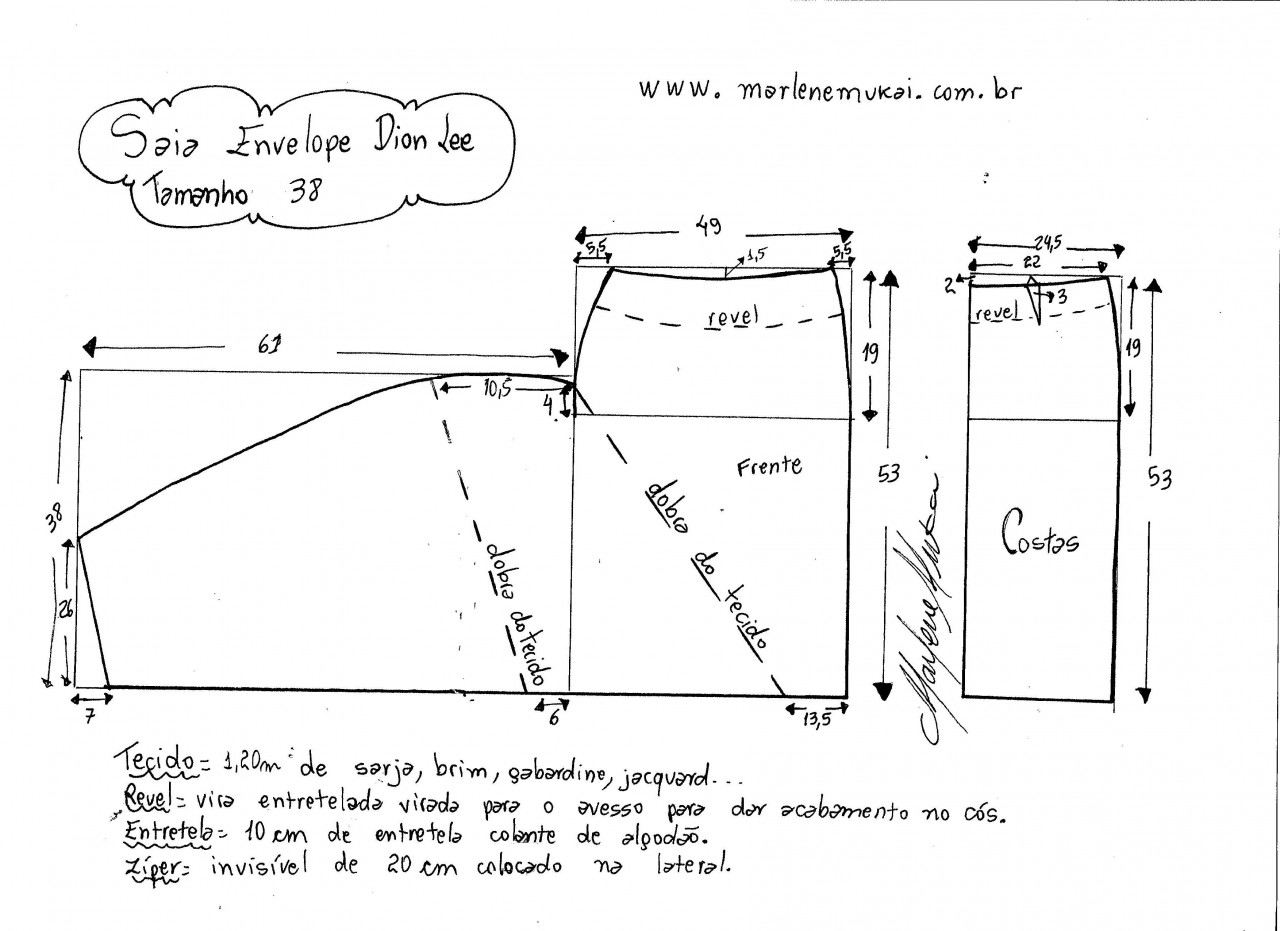 www.marlenemukai.com.br
Saia Envelope Dion Lee
Tamanho 38
49
5,5
1,5
5,5
revel
61
10,5
4
19
Frente
53
38
26
dobra do tecido
dobra do tecido
7
6
13,5
24,5
22
2
3
revel
19
53
Costas
Marlene Mukai
Tecido= 1,20m de sarja, brim, gabardine, jacquard...
Revel= vira entretelada virada para o avesso para dar acabamento no cós.
Entretela= 10 cm de entretela colante de algodão.
Zíper= invisível de 20 cm colocado na lateral.